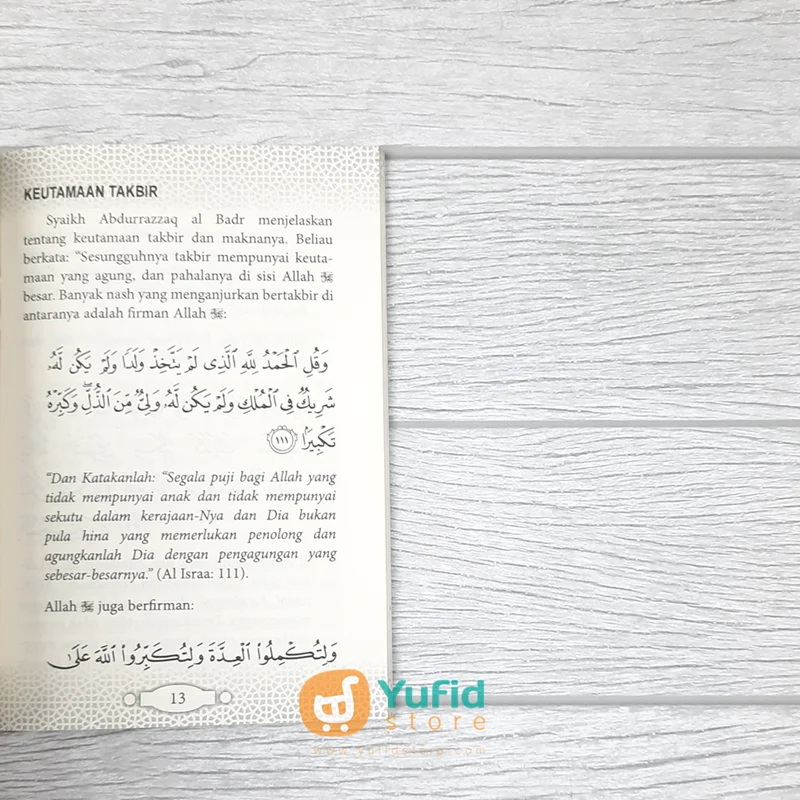 KEUTAMAAN TAKBIR
Syaikh Abdurrazzaq al Badr menjelaskan
tentang keutamaan takbir dan maknanya. Beliau
berkata: “Sesungguhnya takbir mempunyai keuta-
maan yang agung, dan pahalanya di sisi Allah ﷻ
besar. Banyak nash yang menganjurkan bertakbir di
antaranya adalah firman Allah ﷻ:
وَقُلِ ٱلْحَمْدُ لِلَّهِ ٱلَّذِى لَمْ يَتَّخِذْ وَلَدًا وَلَمْ يَكُن لَّهُۥ
شَرِيكٌ فِى ٱلْمُلْكِ وَلَمْ يَكُن لَّهُۥ وَلِىٌّ مِّنَ ٱلذُّلِّ ۖ وَكَبِّرْهُ
تَكْبِيرًا ١١١
“Dan Katakanlah: “Segala puji bagi Allah yang
tidak mempunyai anak dan tidak mempunyai
sekutu dalam kerajaan-Nya dan Dia bukan
pula hina yang memerlukan penolong dan
agungkanlah Dia dengan pengagungan yang
sebesar-besarnya.” (Al Israa: 111).
Allah ﷻ juga berfirman:
وَلِتُكْمِلُوا۟ ٱلْعِدَّةَ وَلِتُكَبِّرُوا۟ ٱللَّهَ عَلَىٰ
13
Yufid
store
www.yufidstore.com